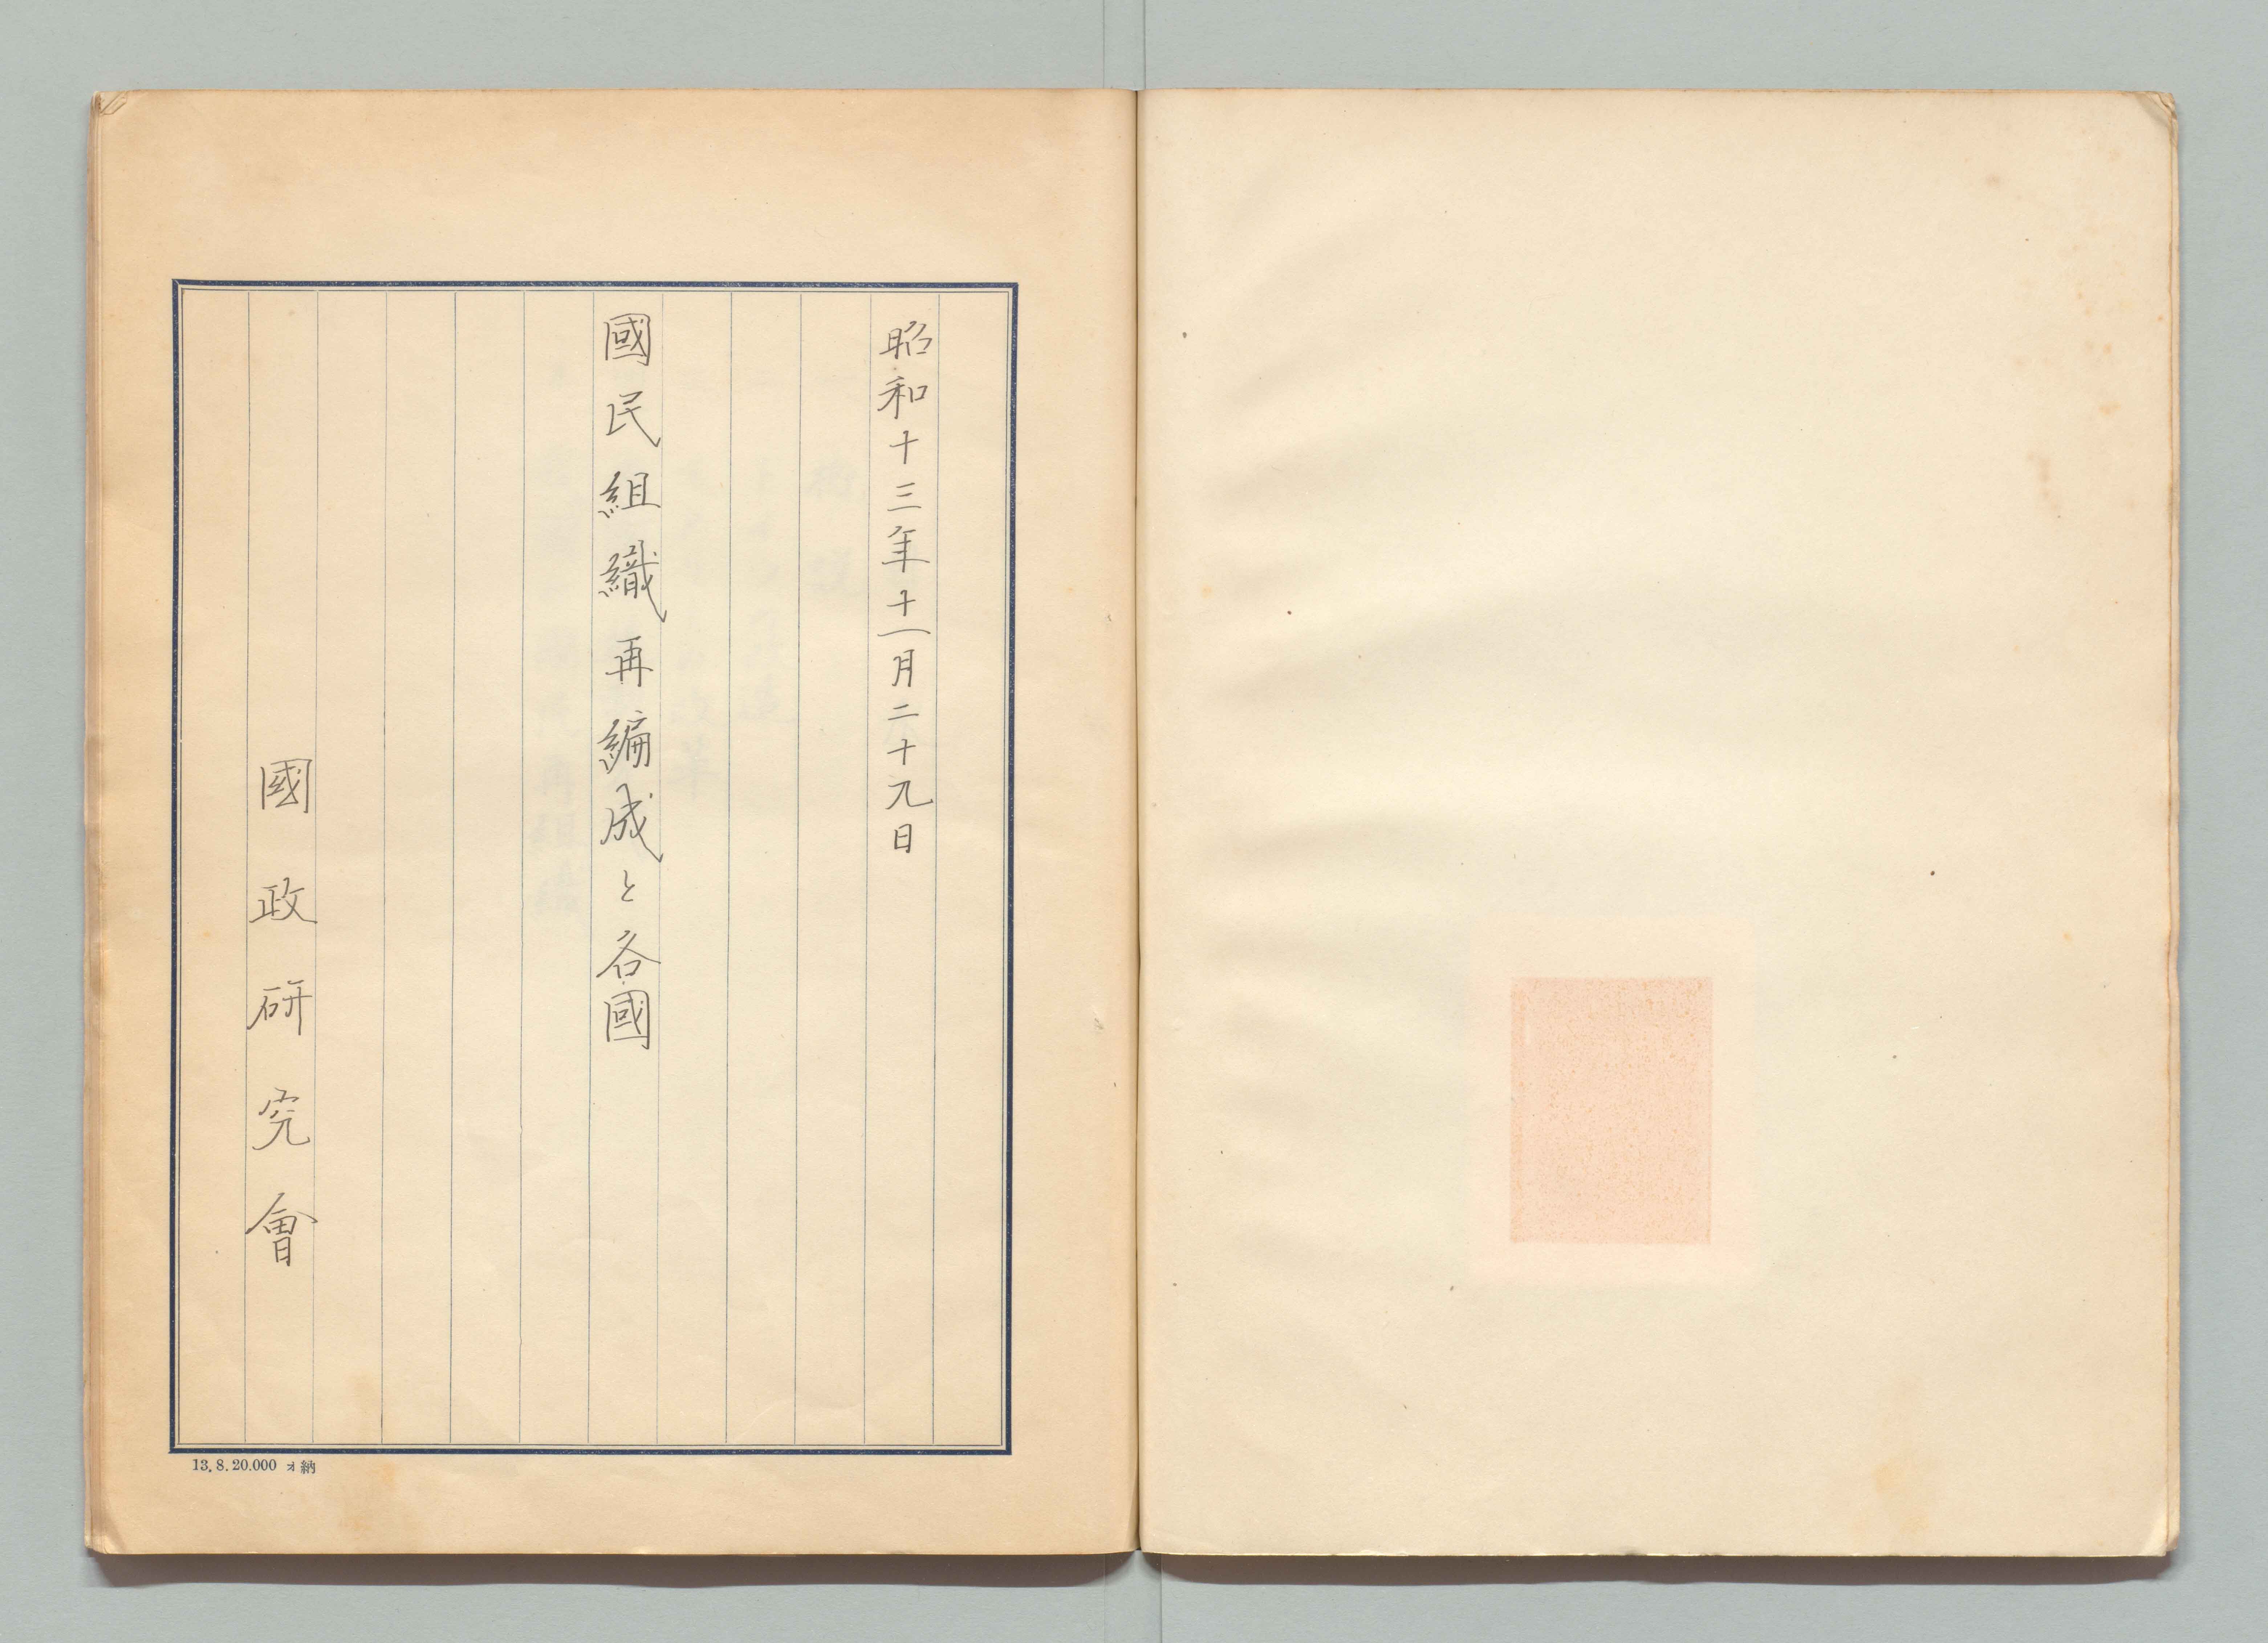 昭和十三年十一月二十九日
國民組織再編成と各國
國政研究會
13.8.20.000 ォ納